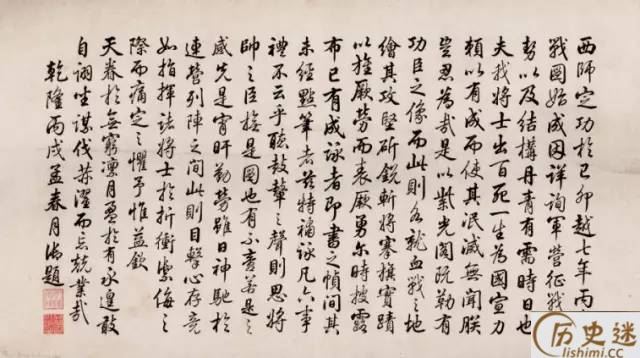 西師定功於己卯越七年丙
戰圖始成因詳詢軍營征戰
勢以及結構丹青有需時日也
夫我將士出百死一生為國宣力
賴以有成而使其泯滅無聞朕
豈忍為哉是以紫光閣既勒有
功臣之像而此則各就血戰之地
繪其攻堅斫銳斬將搴旗實蹟
以旌厥勞而表厥勇爾時披露
布已有成詠者即書之幀間其
未經點筆者茲特補詠凡六事
禮不云乎聽鼓鼙之聲則思將
帥之臣於是圖也有不重
感先是宵旰勤勞雖日神馳於
連營列陣之間此則目擊心存竟
如指揮諸將士於折衝禦侮之
際而痛定之懼予惟益欽
天眷於無窮凜月盈於有永遑敢
自詡坐謀伐荼濯而忘兢業哉
乾隆丙戌孟春月御題
历史迷
lishimi.cc